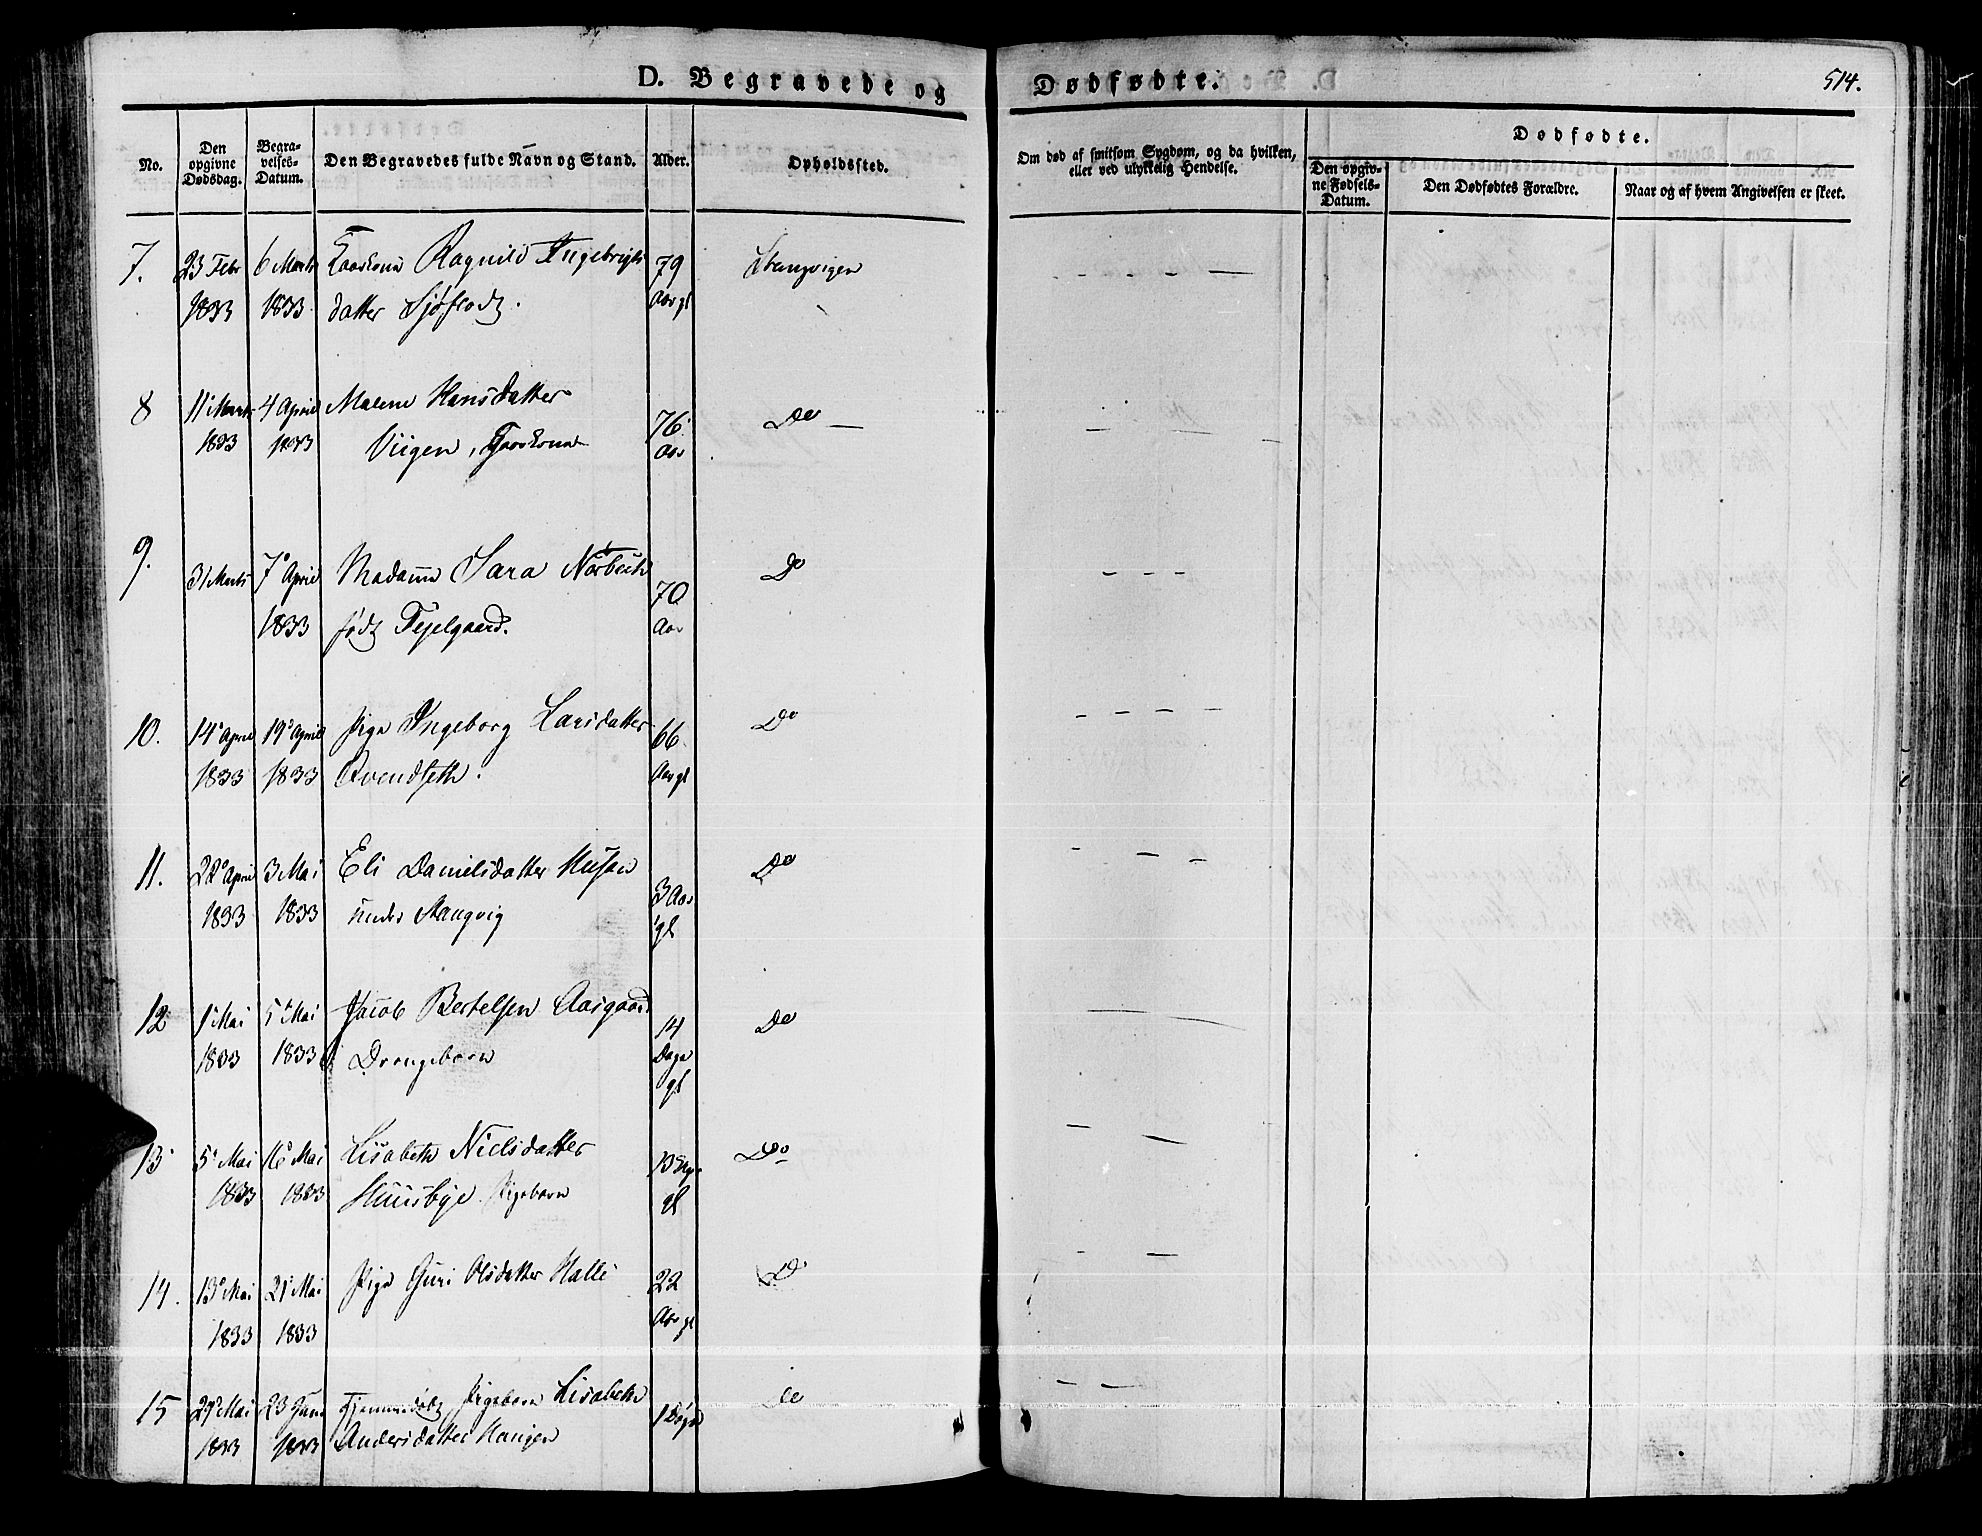 D. Begravede og Dødfødte. 514.
No. Den opgivne Dødsdag. Begravelses-Datum. Den Begravedes fulde Navn og Stand. Alder. Opholdssted. Om død af smitsom Sygdom, og da hvilken, eller ved ulykkelig Hendelse. Dødfødte.
Den opgivne Fødsels-Datum. Den Dødfødtes Forældre. Naar og af hvem Angivelsen er skeet.
7. 23 Febr 6 Marts Ragnild Ingebrigts 79 Stangvigen
1833 1833 datter Aar gl
8 11 Marts 4 April Malene Hansdatter 76 Do
1833 1833 Viigen, Aar
9. 31 Marts 7de April Madame Sara 70 Do
1833 født Fejelgaard. Aar
10. 14de April 19de April Pige Ingeborg Larsdatter 66 Do
1833 1833 Aar gl
11. 22de April 3 Mai Eli Danielsdatter 3 Aar Do
1833 1833 under Stangvig gl
12 1 Mai 5 Mai Jacob Bertelsen Aasgaard 14 Do
1833 1833 Drengebarn Dage gl
13 5 Mai 16 Mai Lisabeth Nielsdatter 13 Do
1833 1833 Huusbye Pigebarn gl
14. 13de Mai 21 Mai Pige Guri Olsdatter Halle 22 Do
1833 1833 Aar gl
15 29 Mai 23 Juni Pigebarn Lisabeth 1 Døgn Do
1833 1833 Andersdatter Haugen